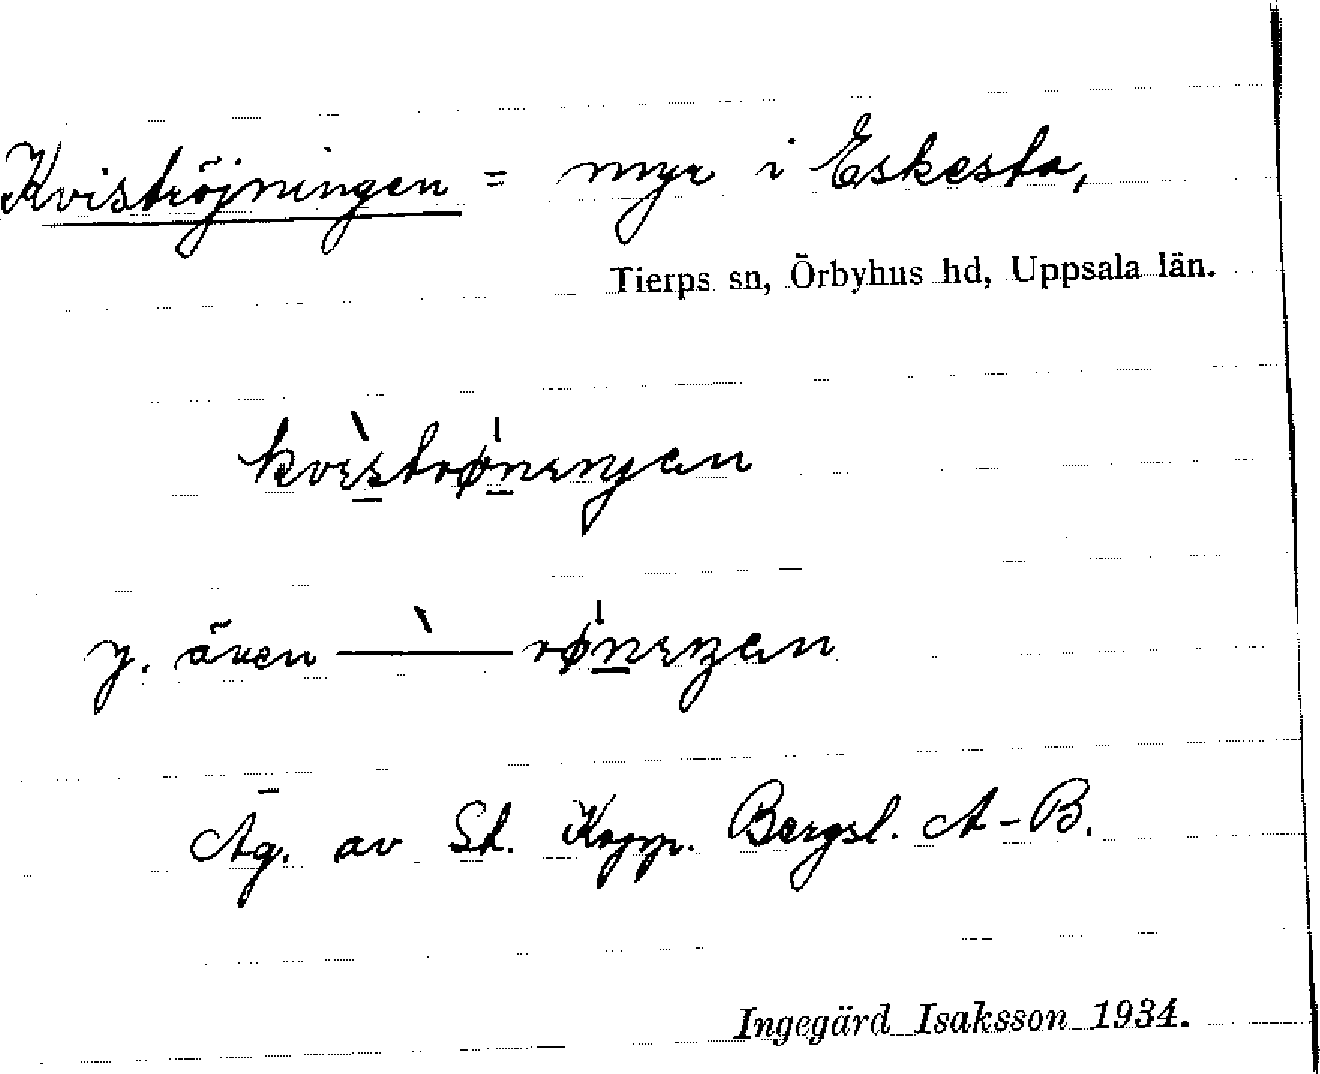 Kviströjningen = myr i Eskesta,
Tierps sn, Örbyhus hd, Uppsala län.
y. även
Äg. av St. Kopp. Bergsl. A-B.
Ingegärd Isaksson 1934.